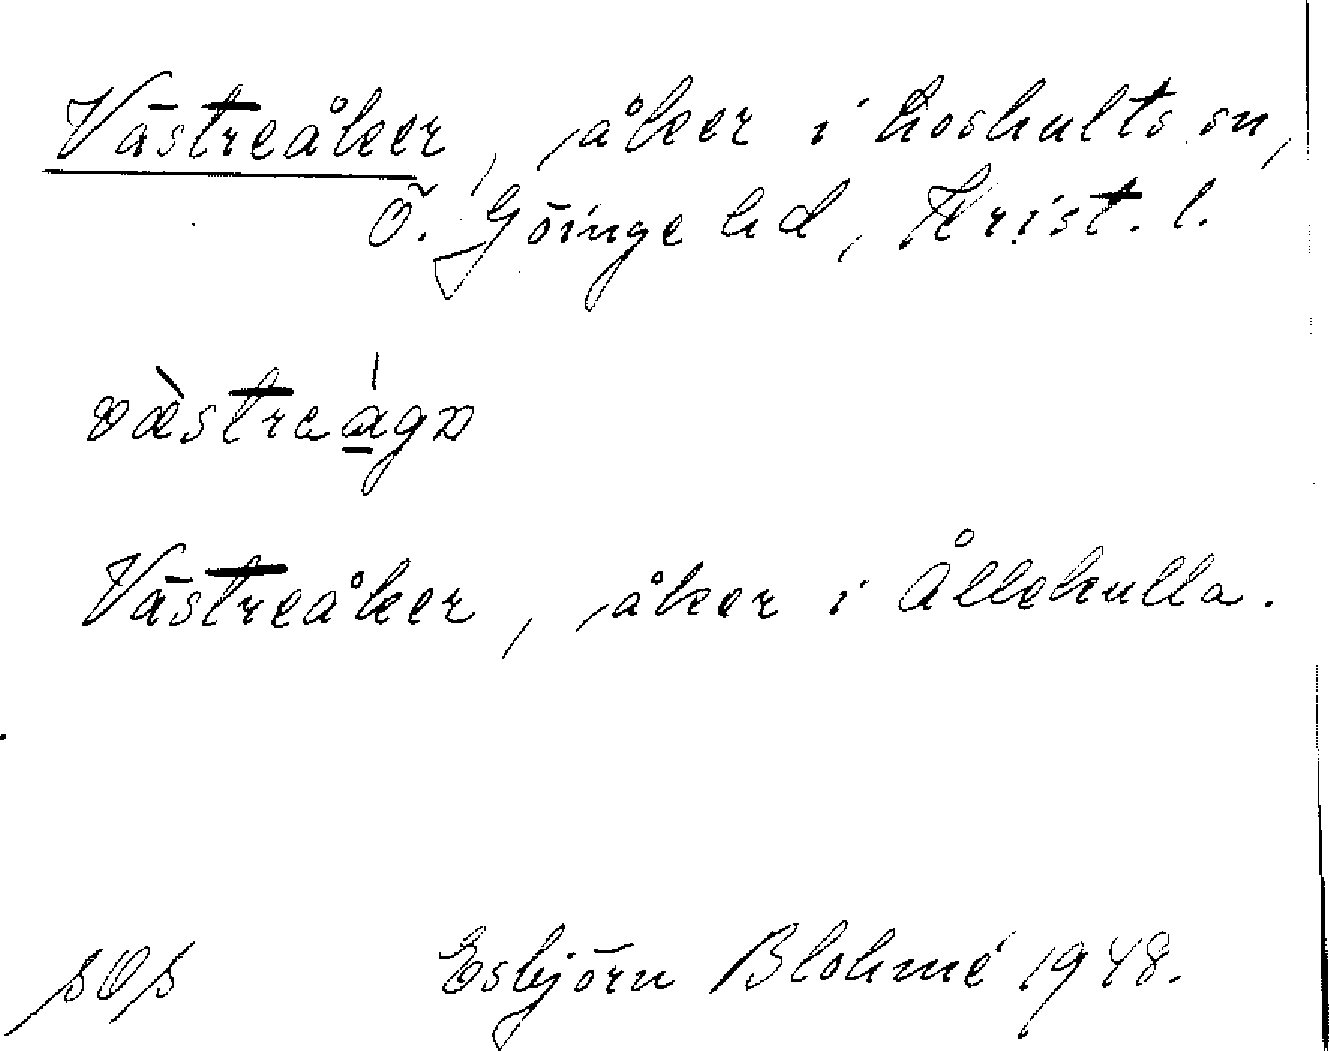 Västreåker, åker i Loshults sn,
Ö. Göinge hd, Krist. l.
Västreåker, åker i Ållekulla.
Esbjörn Blohmé 1948.